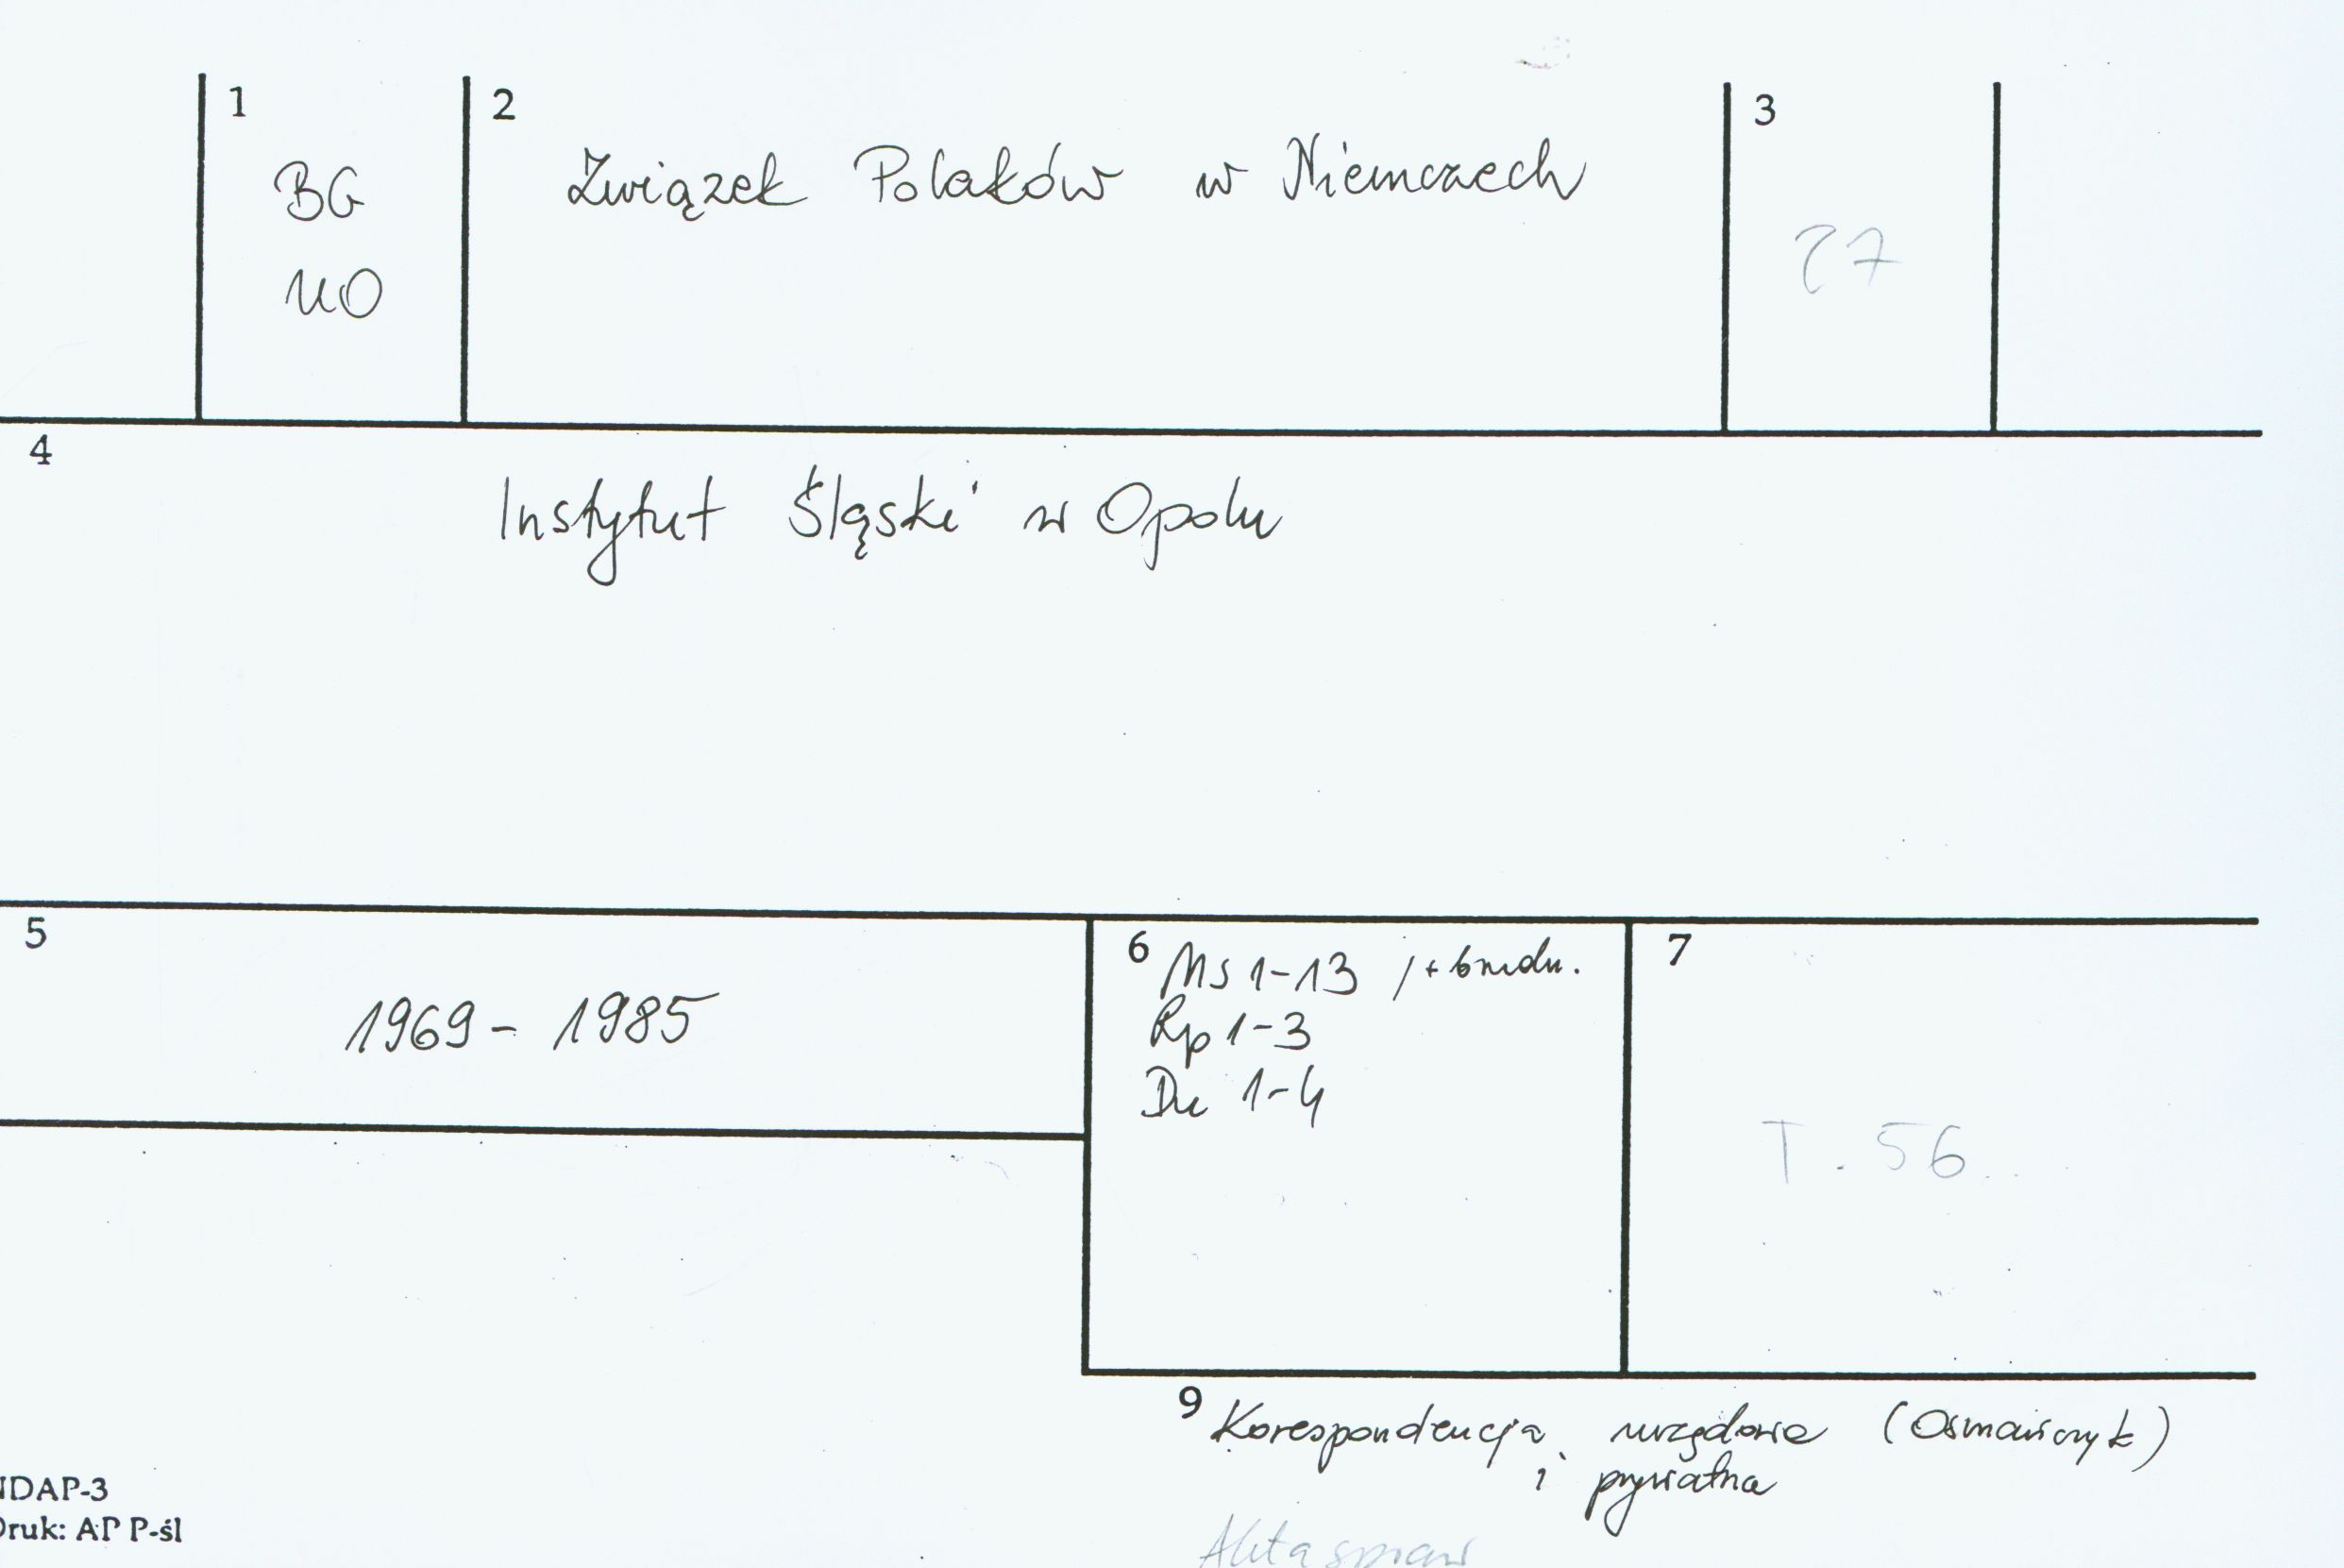 1
BG
UO
2
Związek Polaków w Niemczech
3
27
4
Instytut Śląski w Opolu
5
1969 - 1985
6
Ms 1-13 /+6
Rp 1-3
Du 1-4
7
T. 56
9
Korespondencja urzędowa (Osmańczyk)
i prywatna
Akta spraw
NDAP-3
Druk: AP P-śl